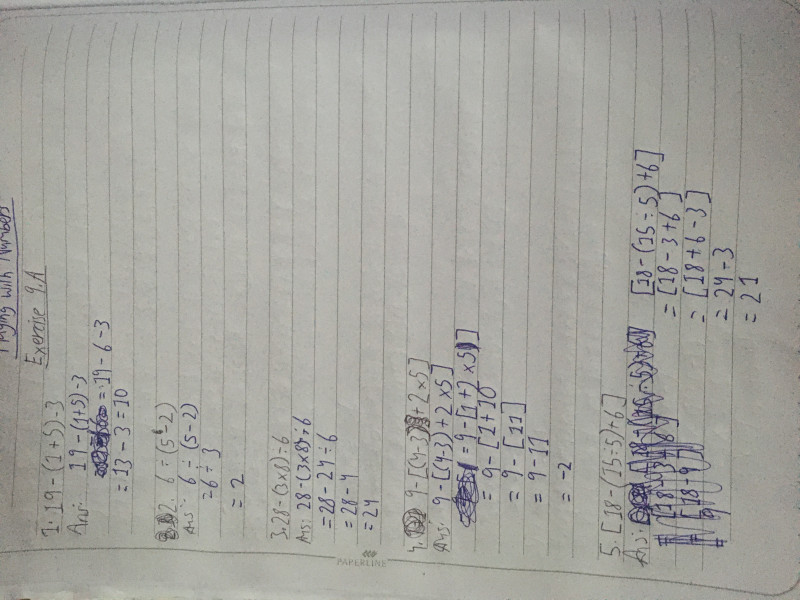 Playing with Numbers
Exercise 9.A
1. 19-(1+5)-3
Ans: 19-(1+5)-3
= 19-6-3
= 13-3 = 10
2. 6÷(5-2)
Ans: 6÷(5-2)
= 6÷3
= 2
3. 28-(3×8)÷6
Ans: 28-(3×8)÷6
= 28-24÷6
= 28-4
= 24
4. 9-[(4-3)+2×5]
Ans: 9-[(4-3)+2×5]
= 9-[1+2×5]
= 9-[1+10
= 9-[11]
= 9-11
= -2
5. [18-(15÷5)+6]
Ans: [18-(15÷5)+6]
= [18-3+6]
= [18+6-3]
= 24-3
= 21
PAPERLINE